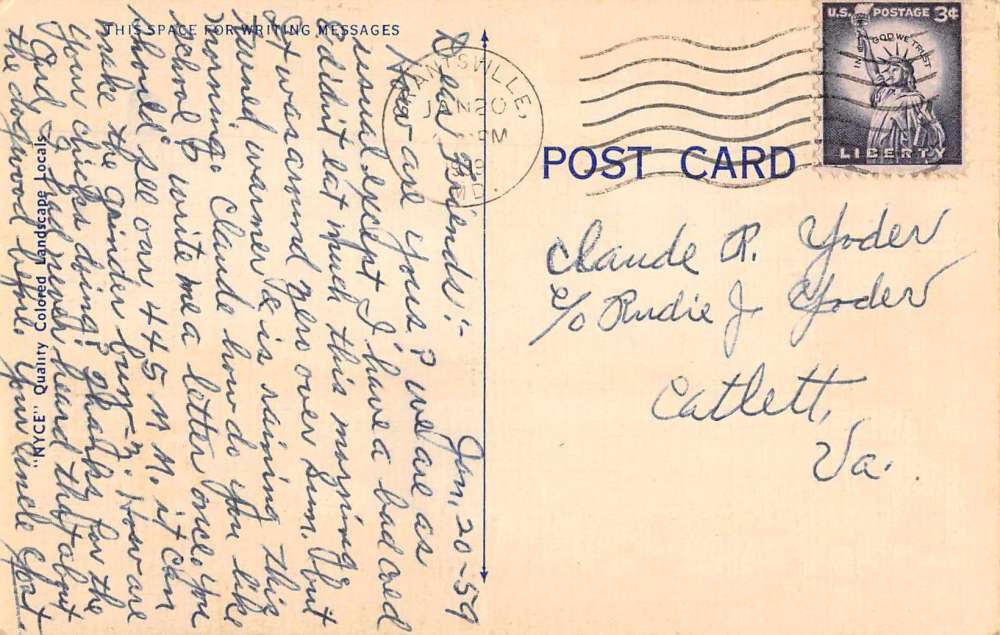 THIS SPACE FOR WRITING MESSAGES
Jan, 20-59
Dear Friends:-
How are yous? we are as
usual except I have a bad cold
& didn't eat much this morning
It was around zero over Sun. but
turned warmer & is raining this
morning. Claude how do you like
school? write me a letter once. You
should see our 445 M M. it can
make the grinder buzz-z. How are
your chicks doing? Thanks for the
Card & I had never heard that about
the dogwood before. Your uncle
"NYCE" Quality Colored Landscape Locals
JAN 20
PM
MD.
POST CARD
U.S. POSTAGE 3¢
IN GOD WE TRUST
LIBERTY
Claude R. Yoder
c/o Rudie J Yoder
Catlett,
Va.